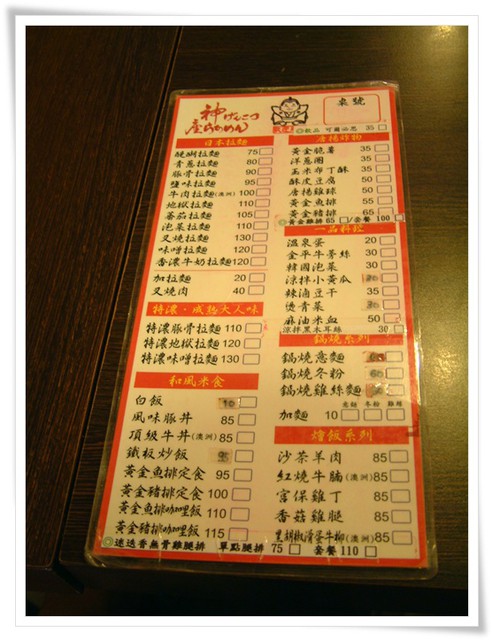 神
げんこつ
屋らーめん
桌號
◎飲品 可爾必思 35
日本拉麵
醍醐拉麵 75
青蔥拉麵 80
豚骨拉麵 90
鹽味拉麵 95
牛肉拉麵(澳洲) 100
地獄拉麵 110
蕃茄拉麵 105
泡菜拉麵 110
叉燒拉麵 130
味噌拉麵 120
香濃牛奶拉麵 120
加拉麵 20
叉燒肉 40
特濃．成熟大人味
特濃豚骨拉麵 110
特濃地獄拉麵 120
特濃味噌拉麵 130
和風米食
白飯 10
風味豚丼 85
頂級牛丼(澳洲) 85
鐵板炒飯
黃金魚排定食 95
黃金豬排定食 100
黃金魚排咖哩飯 110
黃金豬排咖哩飯 115
◎迷迭香無骨雞腿排 單點腿排 75 套餐 110
唐揚炸物
黃金脆薯 35
洋蔥圈 35
玉米布丁酥 35
酥皮豆腐 50
唐揚雞球 50
黃金魚排 55
黃金豬排 65
◎黃金雞排 65 /套餐 100
一品料理
溫泉蛋 20
金平牛蒡絲 30
韓國泡菜 30
涼拌小黃瓜
辣滷豆干 35
燙青菜
麻油米血 50
涼拌黑木耳絲 30
鍋燒系列
鍋燒意麵
鍋燒冬粉
鍋燒雞絲麵
意麵 冬粉 雞絲
加麵 10
燴飯系列
沙茶羊肉 85
紅燒牛腩(澳洲) 85
宮保雞丁 85
香菇雞腿 85
黑胡椒滑蛋牛柳(澳洲) 85